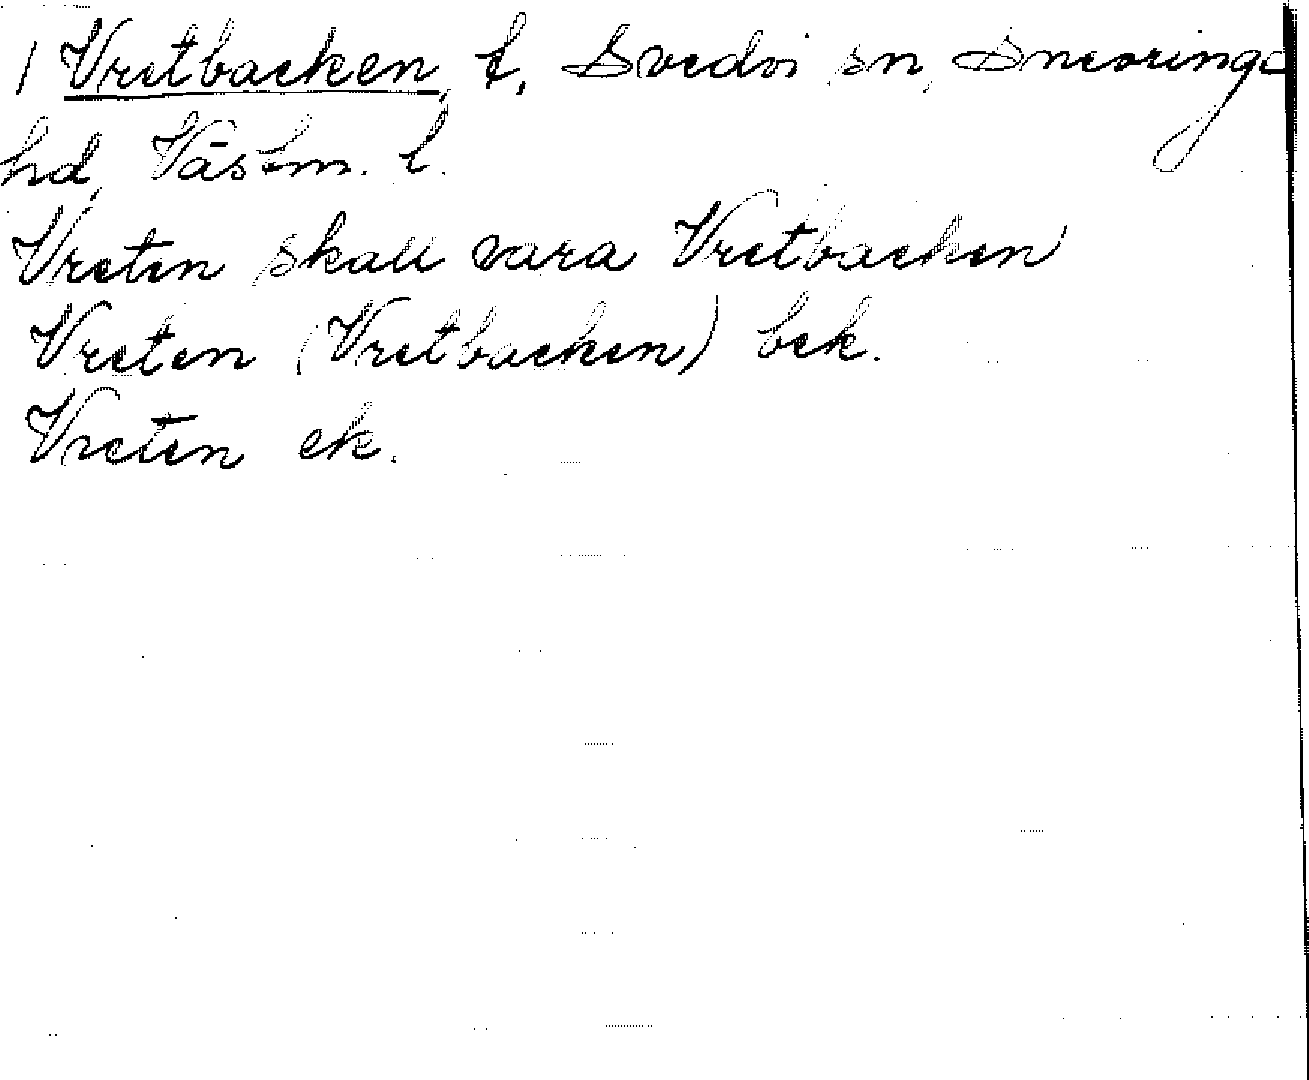 1 Vretbacken, t, Svedvi sn, Snevringe
hd, Västm. l.
Vreten skall vara Vretbacken
Vreten (Vretbacken) bek.
Vreten ek.